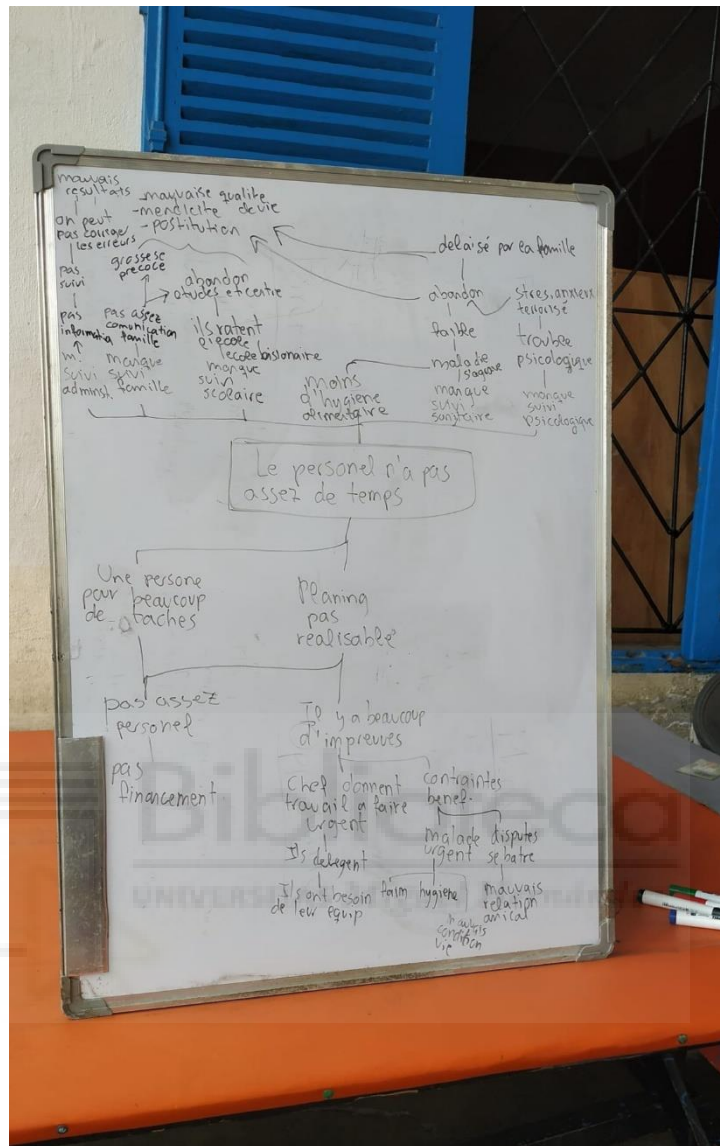 mauvais
resultats
on peut
pas corriger
les erreurs
pas
suivi
pas
m.
suivi
administ.
-mauvaise qualite
de vie
-mendicite
-postitution
grossese
precoce
pas assez
comunication
famille
manque
suivi
famille
abandon
etudes et centre
ils ratent
manque
suivi
scolaire
moins
d'hygiene
alimentaire
delaisé par la famille
abandon
faible
malade
manque
suivi
sanitaire
stres, anxieux
terrorisé
trouble
psicologique
manque
suivi
psicologique
Le personel n'a pas
assez de temps
Une persone
pour beaucoup
de taches
Planing
pas
realisable
pas assez
personel
pas
financement
Il y a beaucoup
d'impreuves
Chef donnent
travail a faire
urgent
Ils delegent
Ils ont besoin
de leur equip
contraintes
benef.
malade
urgent
faim hygiene
condition
vie
disputes
se batre
mauvais
relation
amical
Biblioteca